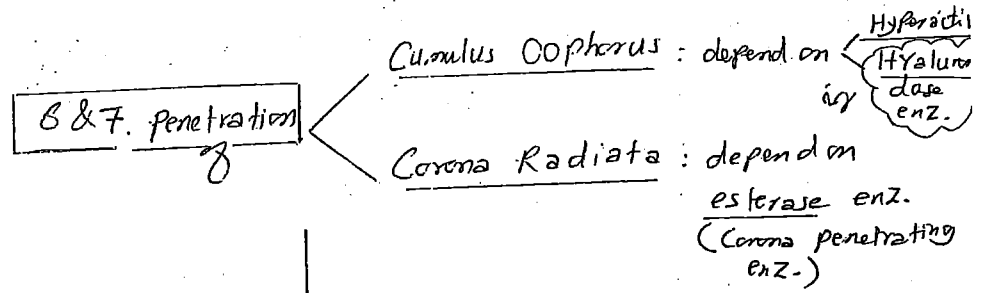 6 & 7. Penetration of
Cumulus Oophorus : depend on
Hyperactiv
Hyaluro
dase
enz.
Corona Radiata : depend on
esterase enz.
(Corona penetrating
enz.)